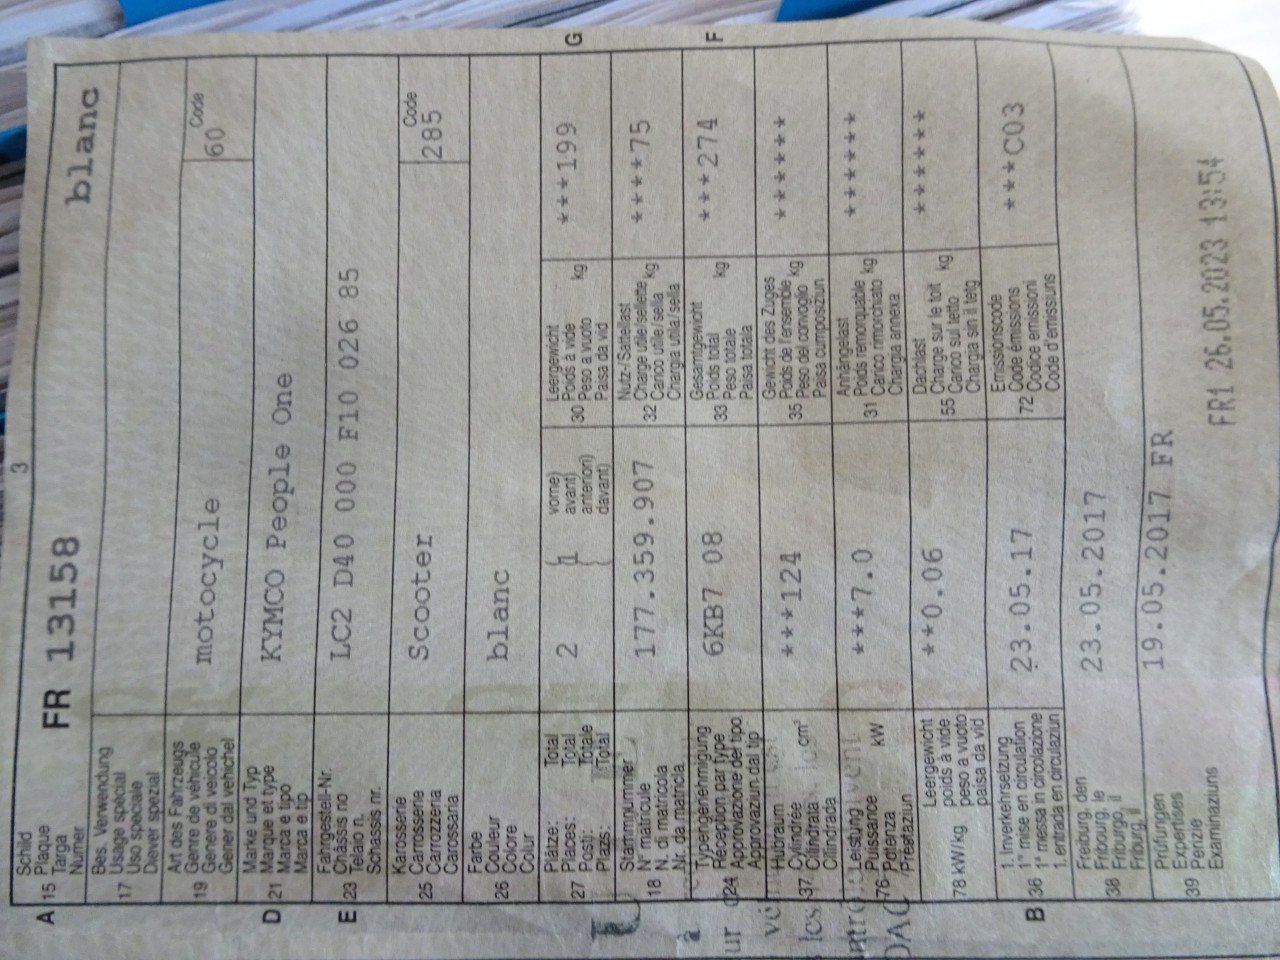 3
A 15 Schild
Plaque
Targa
Numer
FR 13158 blanc
17 Bes. Verwendung
Usage spécial
Uso speciale
Diever spezial
19 Art des Fahrzeugs
Genre de véhicule
Genere di veicolo
Gener dal vehichel
motocycle
Code
60
D 21 Marke und Typ
Marque et type
Marca e tipo
Marca e tip
KYMCO People One
E 23 Fahrgestell-Nr.
Châssis no
Telaio n.
Schassis nr.
LC2 D40 000 F10 026 85
25 Karosserie
Carrosserie
Carrozzeria
Carossaria
Scooter
Code
285
26 Farbe
Couleur
Colore
Colur
blanc
27 Plätze: Total
Places: Total
Posti: Totale
Plazs: Total
2 1
vorne)
avant)
anteriori)
davant)
30 Leergewicht
Poids à vide
Peso a vuoto
Paisa da vid
kg
***199
G
18 Stammnummer
N° matricule
N. di matricola
Nr. da matricla
177.359.907
32 Nutz-/Sattellast
Charge utile/sellette
Carico utile/sella
Chargia utila/sella
kg
****75
24 Typengenehmigung
Réception par type
Approvazione del tipo
Approvaziun dal tip
6KB7 08
33 Gesamtgewicht
Poids total
Peso totale
Paisa totala
kg
***274
F
37 Hubraum
Cylindrée
Cilindrata
Cilindrada
cm³
***124
35 Gewicht des Zuges
Poids de l'ensemble
Peso del convoglio
Paisa cumposiziun
kg
******
76 Leistung
Puissance
Potenza
Prestaziun
kW
***7.0
31 Anhängelast
Poids remorquable
Carico rimorchiato
Chargia annexa
kg
******
78 kW/kg Leergewicht
poids à vide
peso a vuoto
paisa da vid
**0.06
55 Dachlast
Charge sur le toit
Carico sul tetto
Chargia sin il tetg
kg
******
B 36 1. Inverkehrsetzung
1re mise en circulation
1a messa in circolazione
1. entrada en circulaziun
23.05.17
72 Emissionscode
Code émissions
Codice emissioni
Code d'emissiuns
***C03
38 Freiburg, den
Fribourg, le
Friburgo, il
Friburg, il
23.05.2017
39 Prüfungen
Expertises
Perizie
Examinaziuns
19.05.2017 FR
FR1 26.05.2023 13:54